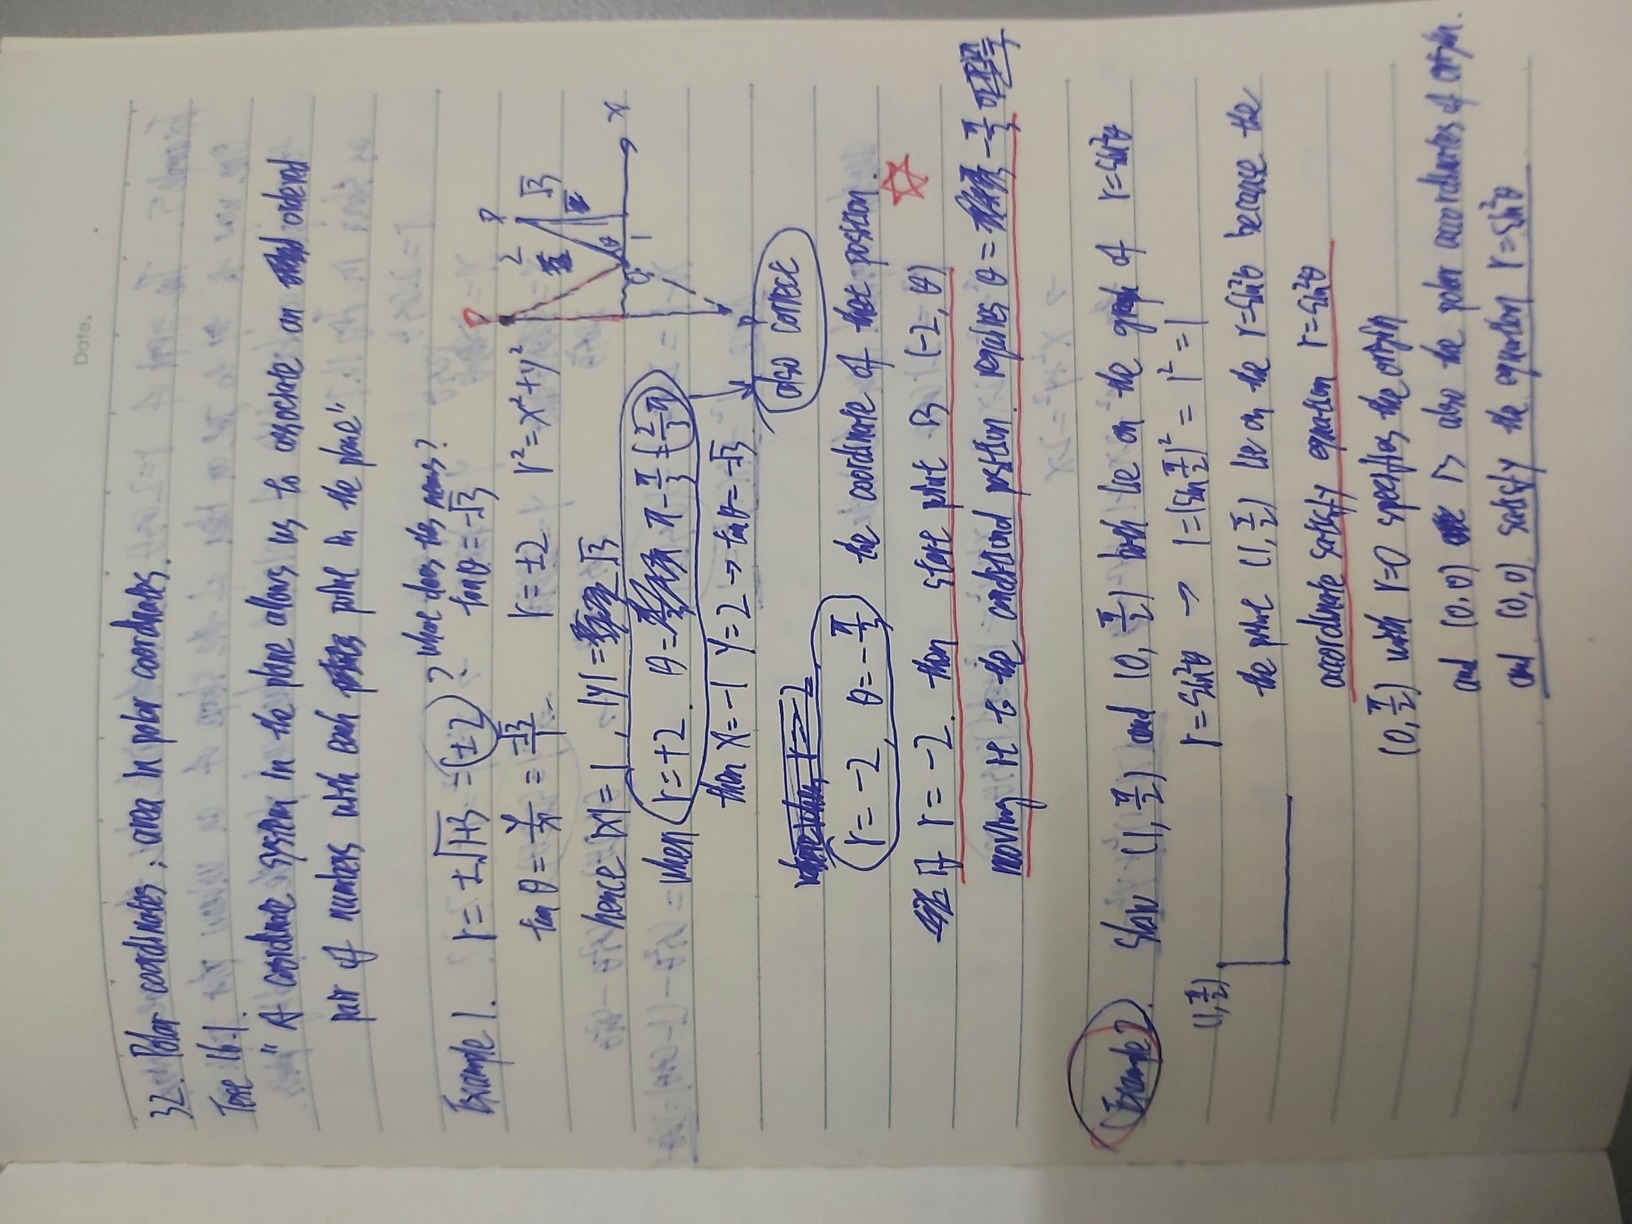 Date.
32. Polar coordinates; area in polar coordinates.
Text 16.1.
"A coordinate system in the plane allows us to associate an ordered
pair of numbers with each point in the plane"
Example 1. r = ±√1+3 = ±2 ? what does this means?
tan θ = y/x = -√3/1 tanθ = -√3
r = ±2 r² = x² + y²
hence |x| = 1, |y| = √3
when r = +2. θ = π - π/3 = 2/3 π
then x = -1 y = 2 → tanθ = -√3
also correct
r = -2, θ = -π/3 the coordinate of that position.
If r = -2. then start point is (-2, θ)
moving it to the conditional position. requires θ = -π/3
P
P
2
√3
θ
O
1
x
P
Example 2. Show (1, π/2) and (0, π/2) both lie on the graph of r = sin²θ
r = sin²θ → 1 = (sin π/2)² = 1² = 1
(1, π/2)
the point (1, π/2) lie on the r = sin²θ because the
accordinate satisfy equation r = sin²θ
(0, π/2) with r = 0 specifies the origin
and (0, 0) is also the polar accordinates of origin.
and (0, 0) satisfy the equation r = sin²θ